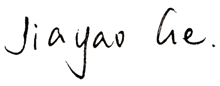 Jiayao Ge.